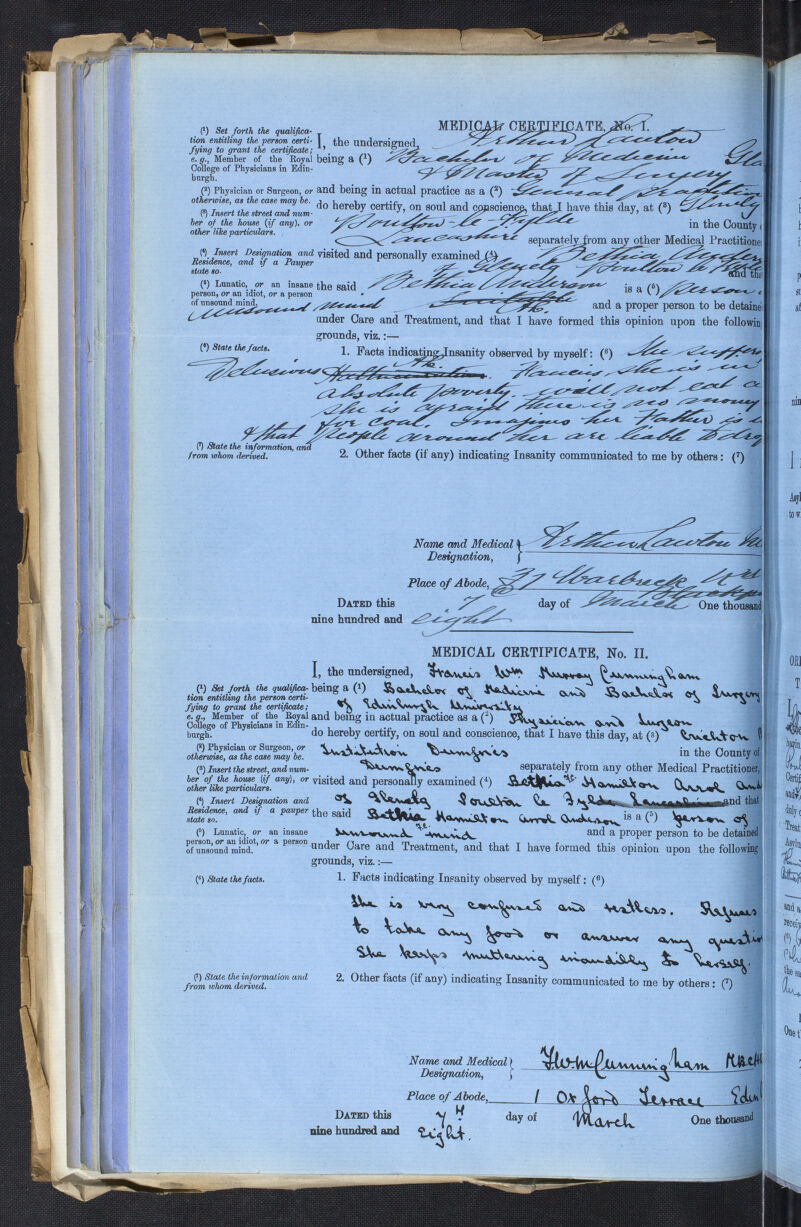 MEDICAL CERTIFICATE, No. I.
(¹) Set forth the qualifica-
tion entitling the person certi-
fying to grant the certificate;
e. g., Member of the Royal
College of Physicians in Edin-
burgh.
(²) Physician or Surgeon, or
otherwise, as the case may be.
(³) Insert the street and num-
ber of the house (if any), or
other like particulars.
(⁴) Insert Designation and
Residence, and if a Pauper
state so.
(⁵) Lunatic, or an insane
person, or an idiot, or a person
of unsound mind.
(⁶) State the facts.
(⁷) State the information, and
from whom derived.
I, the undersigned, Arthur Lawton
being a (¹) Bachelor of Medicine
& Master of Surgery
and being in actual practice as a (²) General
do hereby certify, on soul and conscience, that I have this day, at (³)
Poulton-le-Fylde in the County
Lancashire separately from any other Medical Practitione
visited and personally examined (⁴) Bethia
of Glenelg Poulton le and tha
the said Bethia Anderson is a (⁵) person
unsound mind and a proper person to be detaine
under Care and Treatment, and that I have formed this opinion upon the followin
grounds, viz. :—
1. Facts indicating Insanity observed by myself: (⁶) She suffers
Delusions Hallucinations. Fancies she is in
absolute poverty. will not eat a
she is afraid there is no money
for coal. Imagines her Father is
& that People around her are liable to
2. Other facts (if any) indicating Insanity communicated to me by others: (⁷)
Name and Medical Designation, Arthur Lawton
Place of Abode, 37 Warbreck
DATED this 7 day of March One thousand
nine hundred and eight
MEDICAL CERTIFICATE, No. II.
(¹) Set forth the qualifica-
tion entitling the person certi-
fying to grant the certificate;
e. g., Member of the Royal
College of Physicians in Edin-
burgh.
(²) Physician or Surgeon, or
otherwise, as the case may be.
(³) Insert the street, and num-
ber of the house (if any), or
other like particulars.
(⁴) Insert Designation and
Residence, and if a pauper
state so.
(⁵) Lunatic, or an insane
person, or an idiot, or a person
of unsound mind.
(⁶) State the facts.
(⁷) State the information and
from whom derived.
I, the undersigned, Francis Wm Murray Cunningham
being a (¹) Bachelor of Medicine and Bachelor of Surgery
of Edinburgh University
and being in actual practice as a (²) Physician and Surgeon
do hereby certify, on soul and conscience, that I have this day, at (³) Crichton
Institution Dumfries in the County of
Dumfries separately from any other Medical Practitioner,
visited and personally examined (⁴) Bethia Hamilton Arrol
of Glenelg Poulton le Fylde Lancashire and that
the said Bethia Hamilton Arrol Anderson is a (⁵) person of
unsound mind and a proper person to be detained
under Care and Treatment, and that I have formed this opinion upon the following
grounds, viz. :—
1. Facts indicating Insanity observed by myself: (⁶)
She is very confused and restless. Refuses
to take any food or answer any
She keeps muttering inaudibly to herself.
2. Other facts (if any) indicating Insanity communicated to me by others: (⁷)
Name and Medical Designation, F Wm Cunningham
Place of Abode, 1 Oxford Terrace
DATED this 7th day of March One thousand
nine hundred and Eight.